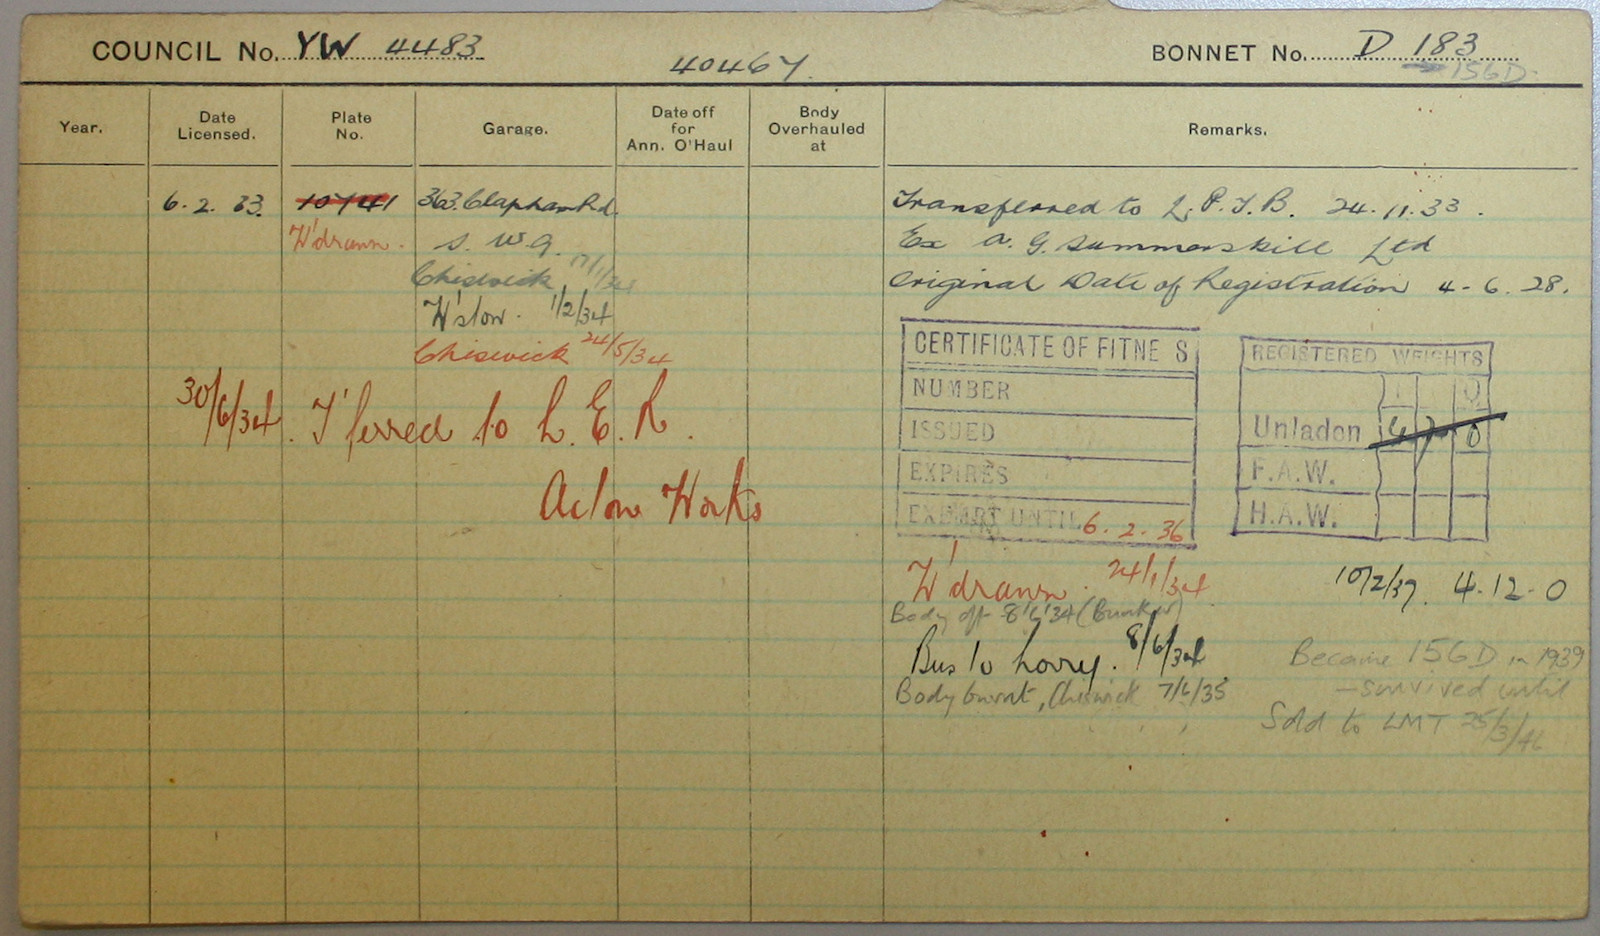 COUNCIL No. YW 4483
40467
BONNET No. D 183
156D
Year.
Date Licensed.
Plate No.
Garage.
Date off for Ann. O'Haul
Body Overhauled at
Remarks.
6.2.33. 10741 363. Clapham Rd.
W'drawn. S. W. 9.
Chiswick 17/1/34
W'slow. 1/2/34
Chiswick 24/5/34
30/6/34. T'ferred to L. E. R.
Acton Works
Transferred to L. P. T. B. 24.11.33.
Ex A. G. Summerskill Ltd
Original Date of Registration 4-6.28.
CERTIFICATE OF FITNE S
NUMBER
ISSUED
EXPIRES
EXEMPT UNTIL 6.2.36
REGISTERED WEIGHTS
Unladen 4 7 0
F.A.W.
H.A.W.
W'drawn. 24/1/34
10/2/37. 4.12-0
Body off 8/6/34
Bus to Lorry. 8/6/34
Body burnt, Chiswick 7/6/35
Became 156D in 1939
- survived until
Sold to LMT 25/3/46